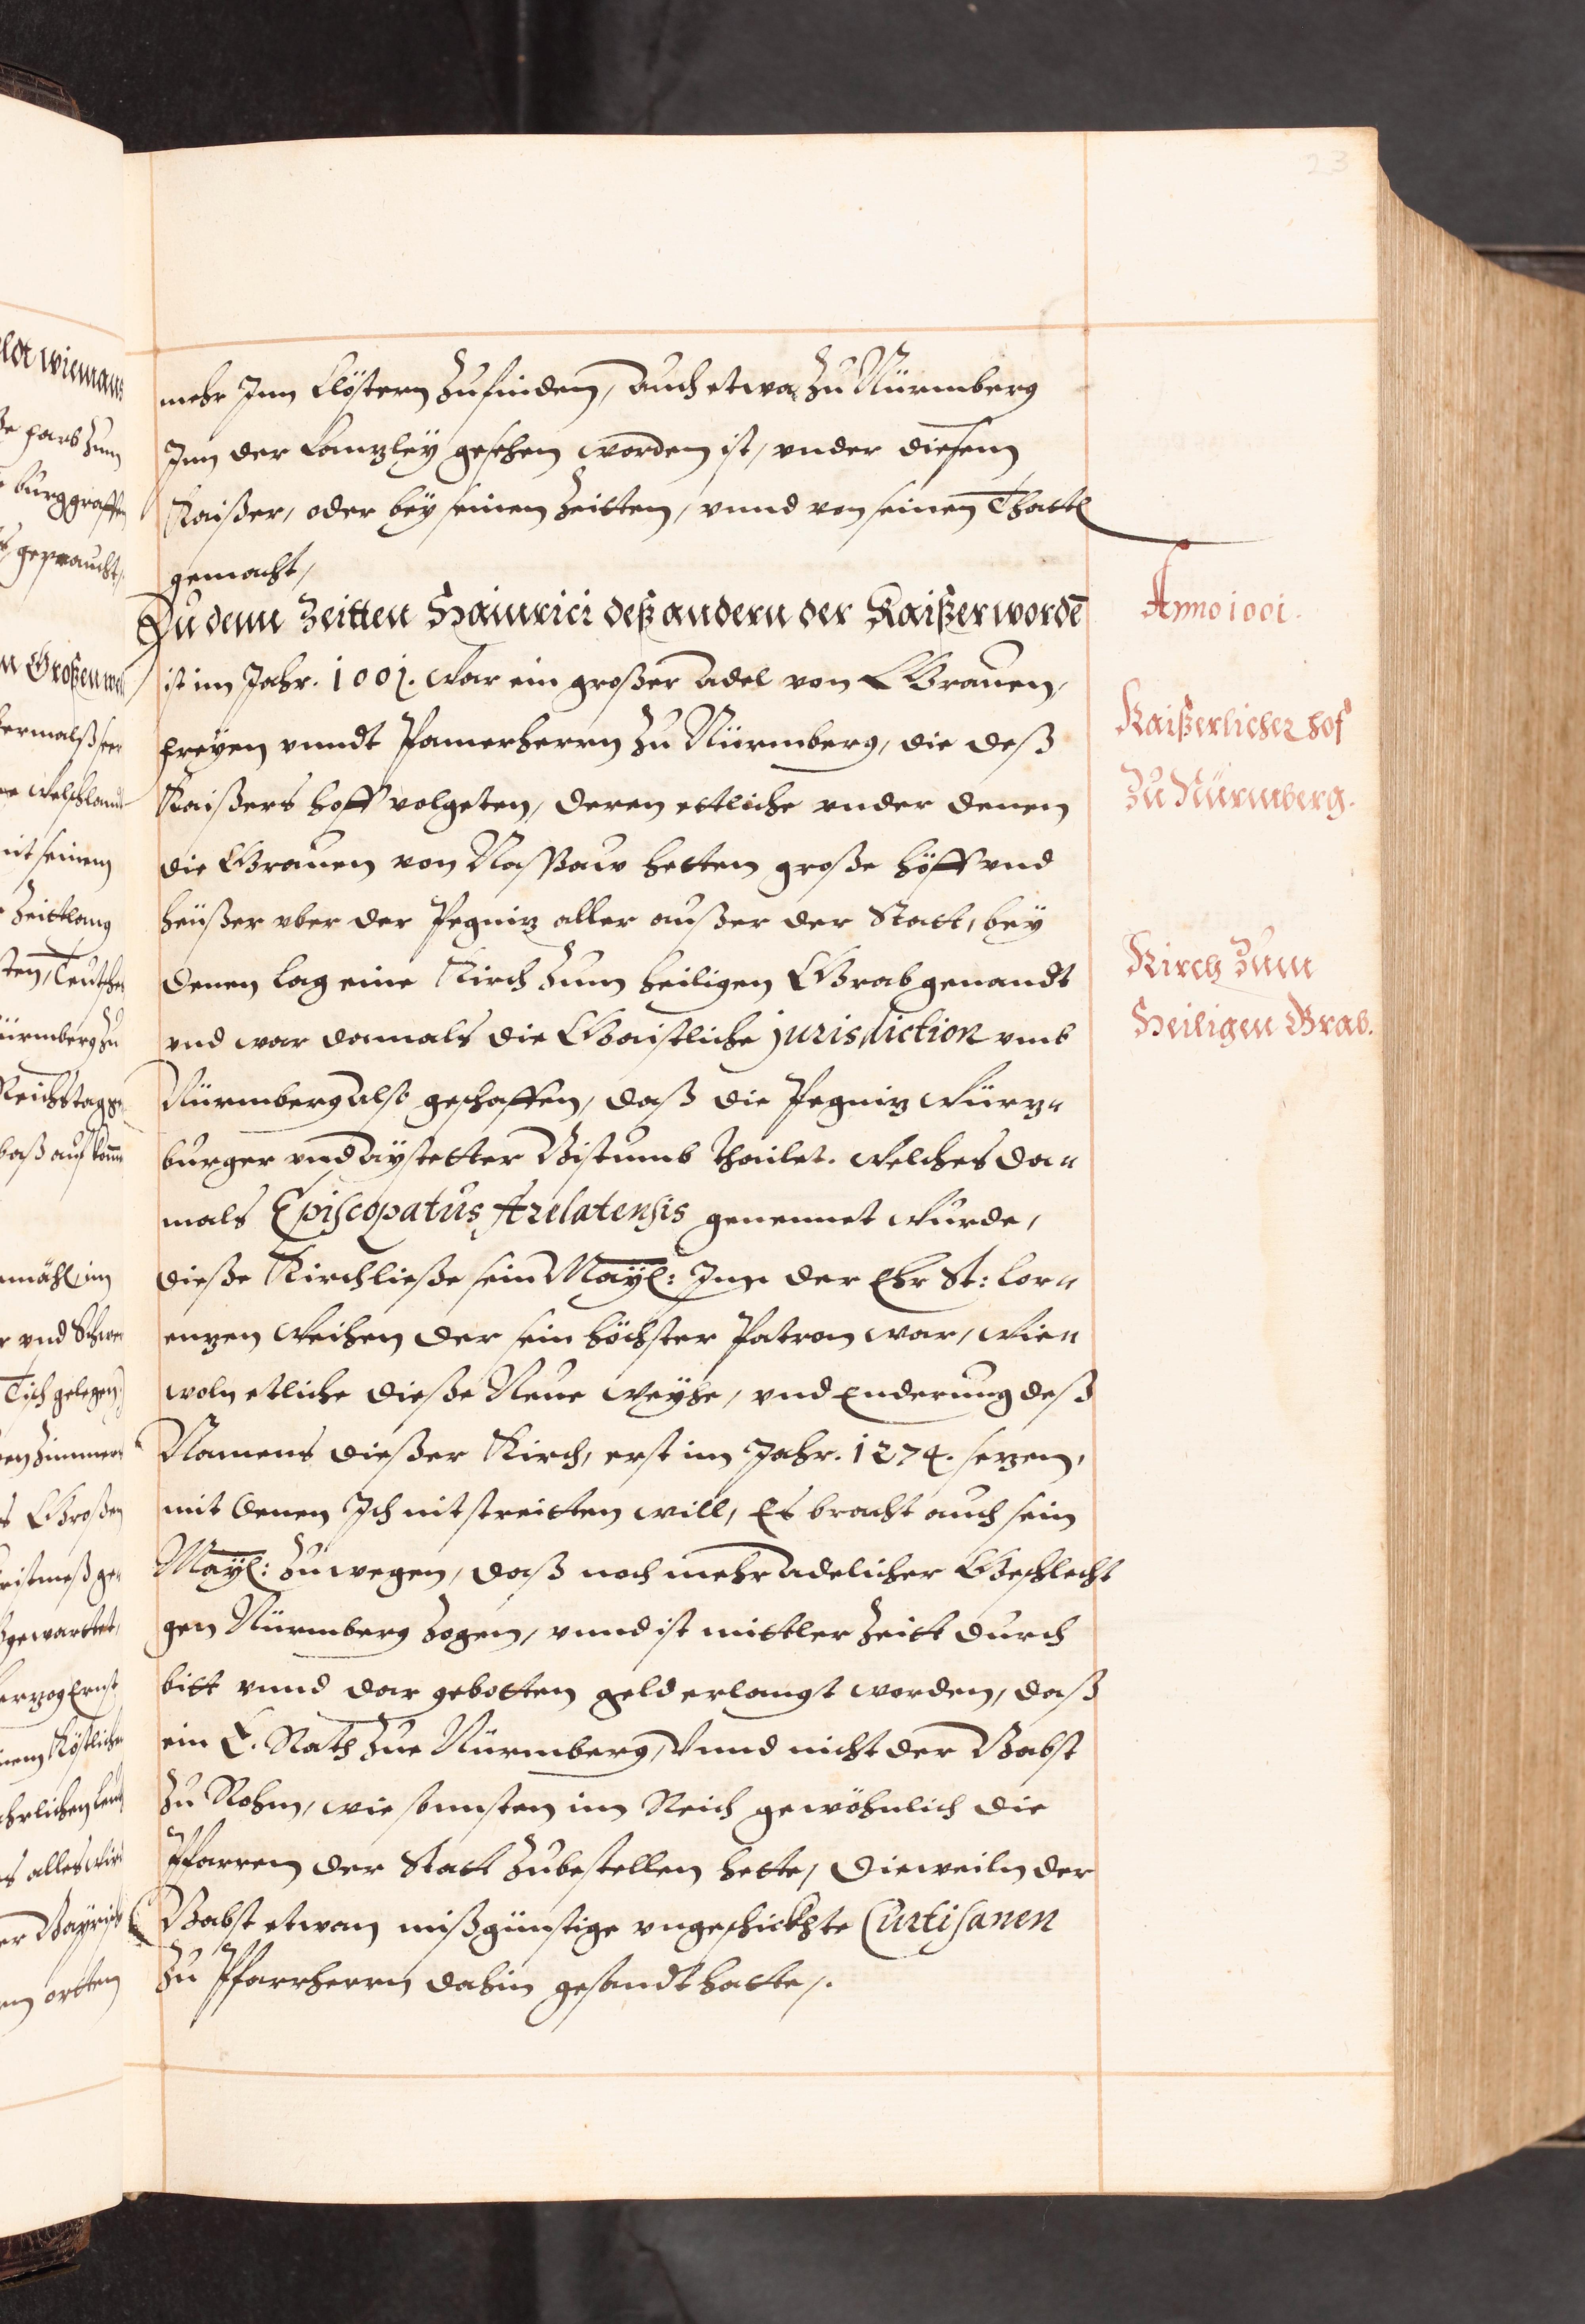 23
mehr Jnn Clöstern zufinden, auch etwa zu Nürmberg
Jnn der Canzley gesehen worden ist, vnder diesem
Kaißer, oder bey seinen Zeitten, vnnd von seinen Thatten
gemacht,
Zu denn Zeitten Hainrici deß andern der Kaißer wordē
ist im Jahr. 1001. War ein großer Adel von Grauen,
freyen vnndt Panerherrn zu Nürmberg, die deß
Kaißers hoff volgeten, deren ettliche vnder denen
die Grauen von Naßaw hetten große höff vnd
heüßer vber der Pegniz aller außer der Statt, bey
denen lag eine Kirch zum heiligen Grab genandt
vnd war damals die Gaistliche jurisdiction vmb
Nürmberg also geschaffen, daß die Pegniz Würz„
burger vnd Aystetter Bistumb thailet. Welches da„
mals Episcopatus Arelatensis genennet Wurde,
dieße Kirch ließe sein May: Jnn der Ehr St: Lor„
enzen Weihen der sein höchster Patron war, Wie„
woln etliche dieße Neue Weyhe, vnd Enderung deß
Namens dießer Kirch, erst im Jahr. 1274. sezen,
mit denen Jch nit streitten will, Es bracht auch sein
May: zuwegen, daß noch mehr Adelicher Geschlecht
gen Nürmberg zogen, vnnd ist mittler Zeitt durch
bitt vnnd dar gebotten geld erlangt worden, daß
ein E. Rath zue Nürmberg, Vnnd nicht der Babst
zu Rohm, wie sonnsten im Reich gewöhnlich die
Pfarren der Statt zubestellen hette, Dieweiln der
Babst etwan mißgünstige vngeschickte Curtisanen
zu Pfarrherrn dahin gesandt hatte,.
Anno 1001.
Kaißerlicher hof
zu Nürmberg.
Kirch zum
Heiligen Grab.